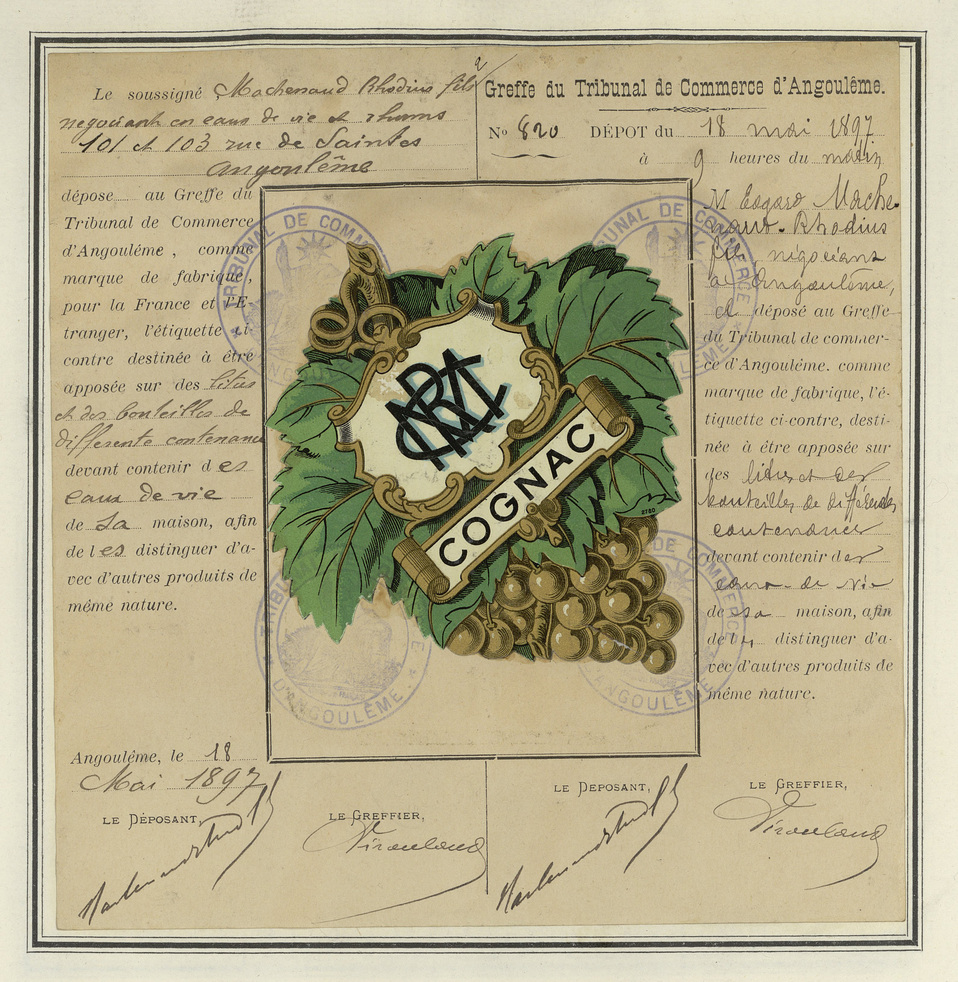 Le soussigné Machenaud Rhodius fils
négociant en eaux de vie et rhums
101 et 103 rue de Saintes
Angoulême
dépose au Greffe du
Tribunal de Commerce
d'Angoulême, comme
marque de fabrique,
pour la France et l'E-
tranger, l'étiquette ci-
contre destinée à être
apposée sur des litres
et des bouteilles de
différente contenance
devant contenir des
eaux de vie
de sa maison, afin
de les distinguer d'a-
vec d'autres produits de
même nature.
Angoulême, le 18
Mai 1897
LE DÉPOSANT,
LE GREFFIER,
Greffe du Tribunal de Commerce d'Angoulême.
No 820 DÉPOT du 18 mai 1897
à 9 heures du matin
M Edgard Mache-
naud-Rhodius
fils, négociant
à Angoulême,
a déposé au Greffe
du Tribunal de commer-
ce d'Angoulême. comme
marque de fabrique, l'é-
tiquette ci-contre, desti-
née à être apposée sur
des litres et des
bouteilles de différentes
contenances
devant contenir des
eaux-de-vie
de sa maison, afin
de les distinguer d'a-
vec d'autres produits de
même nature.
LE DEPOSANT,
LE GREFFIER,
COGNAC
2780
TRIBUNAL DE COMMERCE
D'ANGOULÊME